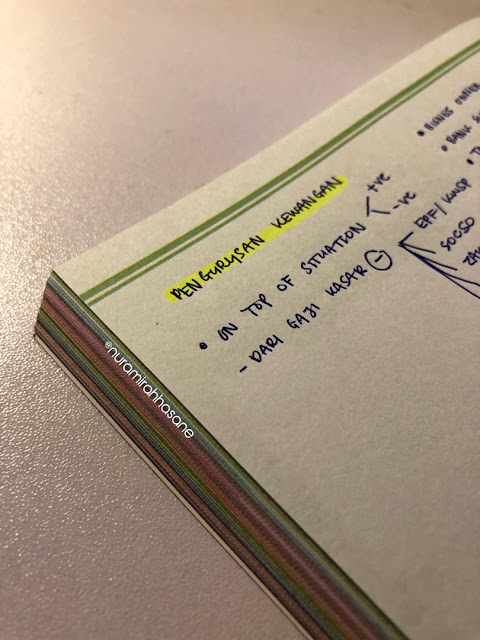 PENGURUSAN KEWANGAN
• ON TOP OF SITUATION
+ve
-ve
- DARI GAJI KASAR
EPF/KWSP
SOCSO
• BANK
@nuramirahhasane